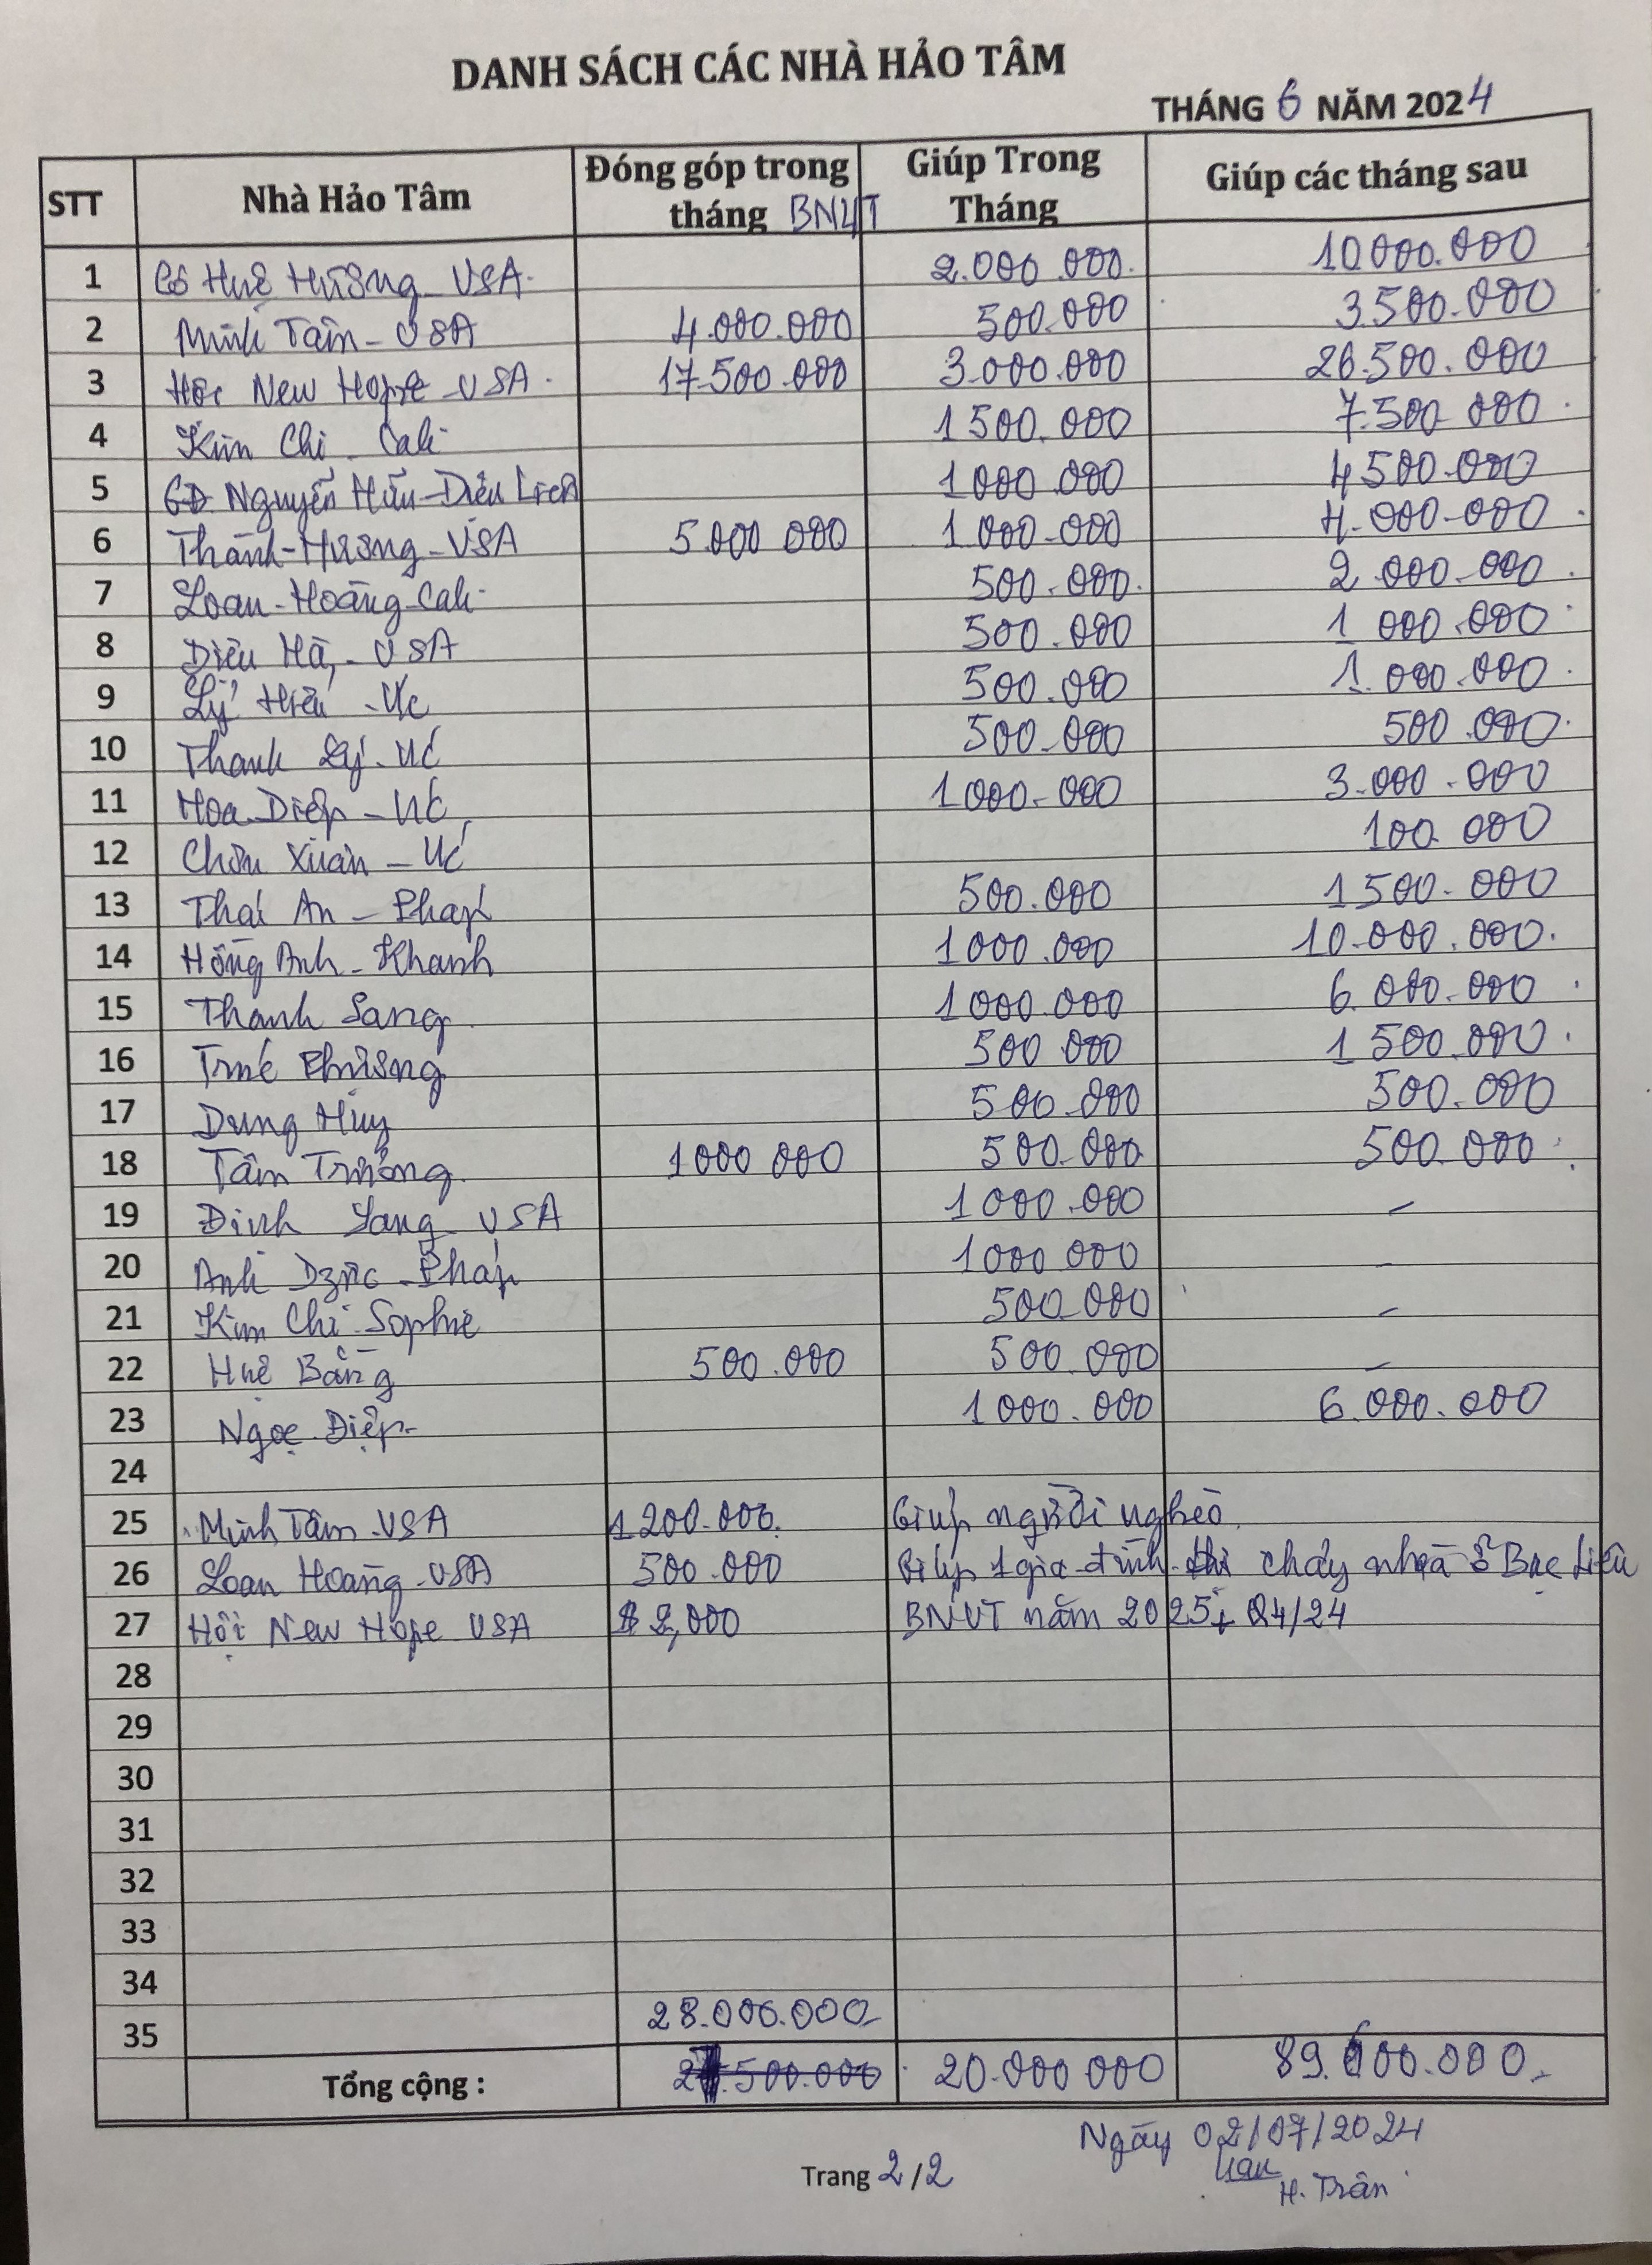 DANH SÁCH CÁC NHÀ HẢO TÂM
THÁNG 6 NĂM 2024
STT Nhà Hảo Tâm Đóng góp trong tháng BNUT Giúp Trong Tháng Giúp các tháng sau
1 Cô Huê Hương - USA. 2.000.000. 10.000.000
2 Minh Tâm - USA 4.000.000 500.000 3.500.000
3 Hội New Hope - USA. 17.500.000 3.000.000 26.500.000
4 Kim Chi - Cali 1.500.000 7.500.000
5 GĐ Nguyễn Hữu - Diệu Liên 1.000.000 4.500.000
6 Thành - Hương - USA 5.000.000 1.000.000 4.000.000
7 Loan - Hoàng - Cali 500.000. 2.000.000
8 Diệu Hà, - USA 500.000 1.000.000
9 Lý Hiếu - Úc 500.000 1.000.000
10 Thanh Lý - Úc 500.000 500.000
11 Hoa Diệp - Úc 1.000.000 3.000.000
12 Chơn Xuân - Úc 100.000
13 Thái An - Pháp 500.000 1.500.000
14 Hồng Anh - Khanh 1.000.000 10.000.000.
15 Thanh Sang 1.000.000 6.000.000
16 Trúc Phương 500.000 1.500.000
17 Dung Huy 500.000 500.000
18 Tâm Trưởng 1.000.000 500.000 500.000
19 Đinh Lang USA 1.000.000 -
20 Anh - Pháp 1.000.000 -
21 Kim Chi - Sophie 500.000 -
22 Huê Bằng 500.000 500.000 -
23 Ngọc Diệp. 1.000.000 6.000.000
24
25 Minh Tâm - USA 1.200.000. Giúp người nghèo.
26 Loan Hoàng - USA 500.000 Giúp 1 gia đình cháy nhà ở Bạc Liêu
27 Hội New Hope USA $ 2,000 BNUT năm 2025 + Q4/24
28
29
30
31
32
33
34
35 28.000.000
Tổng cộng : 500.000 20.000.000 89.600.000.
Ngày 02/07/2024
Trang 2/2
H. Trân